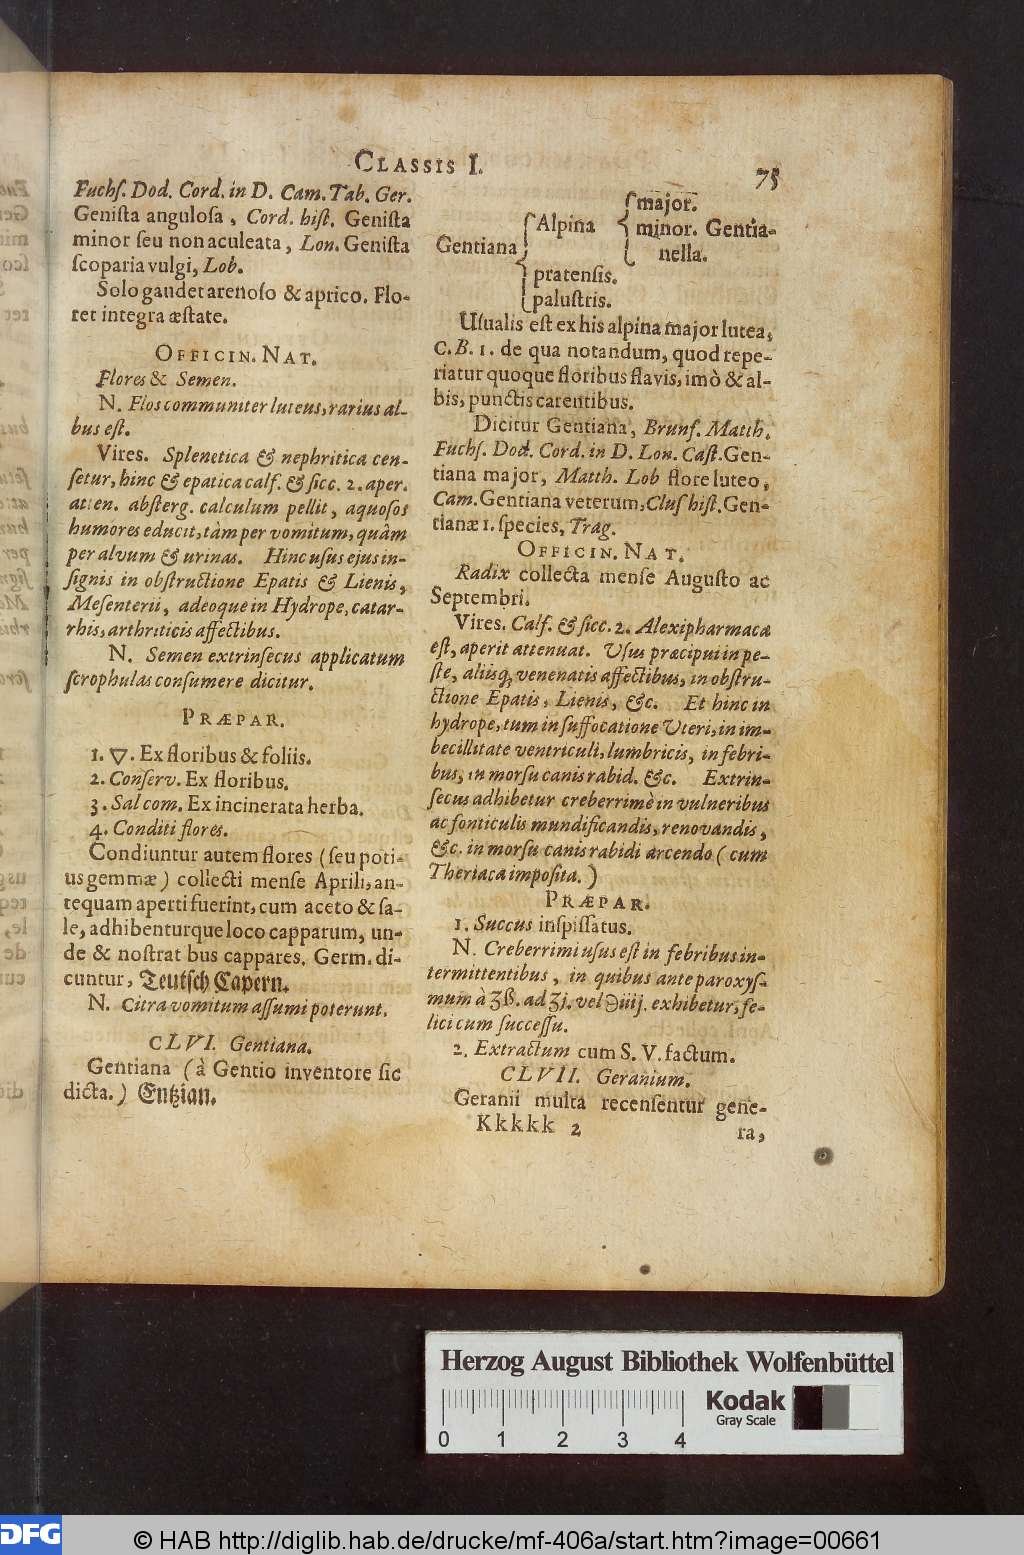 CLASSIS I.
75
Fuchſ. Dod. Cord. in D. Cam. Tab. Ger.
Geniſta anguloſa, Cord. hiſt. Geniſta
minor ſeu non aculeata, Lon. Geniſta
ſcoparia vulgi, Lob.
Solo gaudet arenoſo & aprico. Flo-
ret integra æſtate.
OFFICIN. NAT.
Flores & Semen.
N. Flos communiter luteus, rarius al-
bus eſt.
Vires. Splenetica & nephritica cen-
ſetur, hinc & epatica calf. & ſicc. 2. aper.
atten. abſterg. calculum pellit, aquoſos
humores educit, tàm per vomitum, quàm
per alvum & urinas. Hinc uſus ejus in-
ſignis in obſtructione Epatis & Lienis,
Meſenterii, adeoque in Hydrope, catar-
rhis, arthriticis affectibus.
N. Semen extrinſecus applicatum
ſcrophulas conſumere dicitur.
PRÆPAR.
1. 🜄. Ex floribus & foliis.
2. Conſerv. Ex floribus.
3. Sal com. Ex incinerata herba.
4. Conditi flores.
Condiuntur autem flores (ſeu poti-
us gemmæ) collecti menſe Aprili, an-
tequam aperti fuerint, cum aceto & ſa-
le, adhibenturque loco capparum, un-
de & noſtrat bus cappares. Germ. di-
cuntur, Teutſch Capern.
N. Citra vomitum aſſumi poterunt.
CLVI. Gentiana.
Gentiana (à Gentio inventore ſic
dicta.) Entzian.
Gentiana { Alpina { major.
minor. Gentia-
nella.
pratenſis.
paluſtris.
Uſualis eſt ex his alpina major lutea,
C. B. 1. de qua notandum, quod repe-
riatur quoque floribus flavis, imò & al-
bis, punctis carentibus.
Dicitur Gentiana, Brunf. Matth.
Fuchſ. Dod. Cord. in D. Lon. Caſt. Gen-
tiana major, Matth. Lob flore luteo,
Cam. Gentiana veterum, Cluſ hiſt. Gen-
tianæ 1. ſpecies, Trag.
OFFICIN. NAT.
Radix collecta menſe Auguſto ac
Septembri.
Vires. Calf. & ſicc. 2. Alexipharmaca
eſt, aperit attenuat. Uſus præcipui in pe-
ſte, aliisq; venenatis affectibus, in obſtru-
ctione Epatis, Lienis, &c. Et hinc in
hydrope, tum in ſuffocatione Uteri, in im-
becillitate ventriculi, lumbricis, in febri-
bus, in morſu canis rabid. &c. Extrin-
ſecus adhibetur creberrimè in vulneribus
ac fonticulis mundificandis, renovandis,
&c. in morſu canis rabidi arcendo (cum
Theriaca impoſita.)
PRÆPAR.
1. Succus inſpiſſatus.
N. Creberrimi uſus eſt in febribus in-
termittentibus, in quibus ante paroxyſ-
mum à ʒß. ad ʒj. vel ℈iiij. exhibetur, fe-
lici cum ſucceſſu.
2. Extractum cum S. V. factum.
CLVII. Geranium.
Geranii multa recenſentur gene-
Kkkkk 2
ra,
Herzog August Bibliothek Wolfenbüttel
Kodak
Gray Scale
0 1 2 3 4
DFG
© HAB http://diglib.hab.de/drucke/mf-406a/start.htm?image=00661